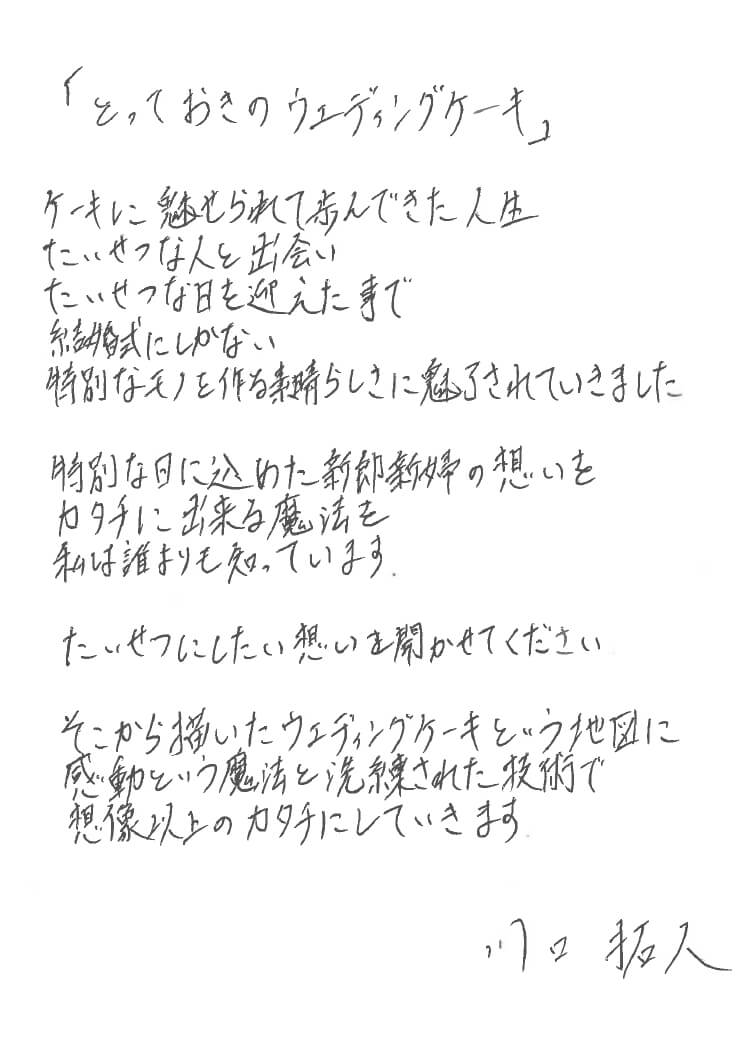 「とっておきのウェディングケーキ」
ケーキに魅せられて歩んできた人生
たいせつな人と出会い
たいせつな日を迎えた事で
結婚式にしかない
特別なモノを作る素晴らしさに魅了されていきました
特別な日に込めた新郎新婦の想いを
カタチに出来る魔法を
私は誰よりも知っています.
たいせつにしたい想いを聞かせてください
そこから描いたウェディングケーキという地図に
感動という魔法と洗練された技術で
想像以上のカタチにしていきます.
川口 拓人